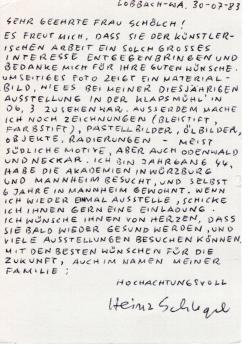 LOBBACH-WA. 30-07-83
SEHR GEEHRTE FRAU SCHÖLCH!
ES FREUT MICH, DASS SIE DER KÜNSTLER-
ISCHEN ARBEIT EIN SOLCH GROSSES
INTERESSE ENTGEGENBRINGEN UND
BEDANKE MICH FÜR IHRE GUTEN WÜNSCHE.
UMSEITIGES FOTO ZEIGT EIN MATERIAL-
BILD, WIE ES BEI MEINER DIESJÄHRIGEN
AUSSTELLUNG IN DER KLAPSMÜHL' IN
ZU SEHEN WAR. AUSSERDEM MACHE
ICH NOCH ZEICHNUNGEN (BLEISTIFT,
FARBSTIFT), PASTELLBILDER, ÖLBILDER,
OBJEKTE, RADIERUNGEN - MEIST
SÜDLICHE MOTIVE, ABER AUCH ODENWALD
UND NECKAR. ICH BIN JAHRGANG 44,
HABE DIE AKADEMIEN IN WÜRZBURG
UND MANNHEIM BESUCHT, UND SELBST
6 JAHRE IN MANNHEIM GEWOHNT. WENN
ICH WIEDER EINMAL AUSSTELLE, SCHICKE
ICH IHNEN GERN EINE EINLADUNG.
ICH WÜNSCHE IHNEN VON HERZEN, DASS
SIE BALD WIEDER GESUND WERDEN, UND
VIELE AUSSTELLUNGEN BESUCHEN KÖNNEN.
MIT DEN BESTEN WÜNSCHEN FÜR DIE
ZUKUNFT, AUCH IM NAMEN MEINER
FAMILIE:
HOCHACHTUNGSVOLL
Heinz Schlegel